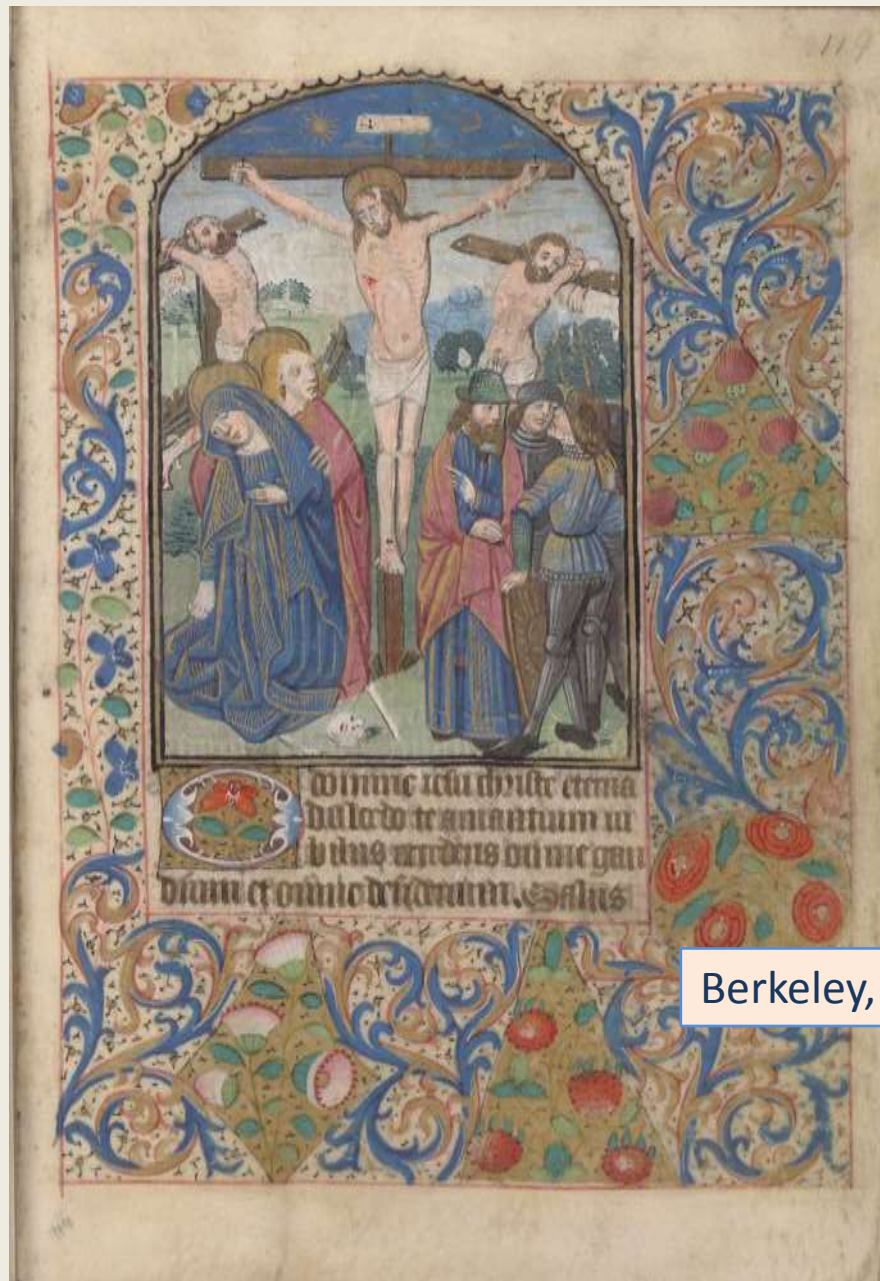 119
domine iesu christe eterna
dulcedo te amantium iu
bilus excedens omne gau
dium et omne desiderium. Salus
Berkeley,